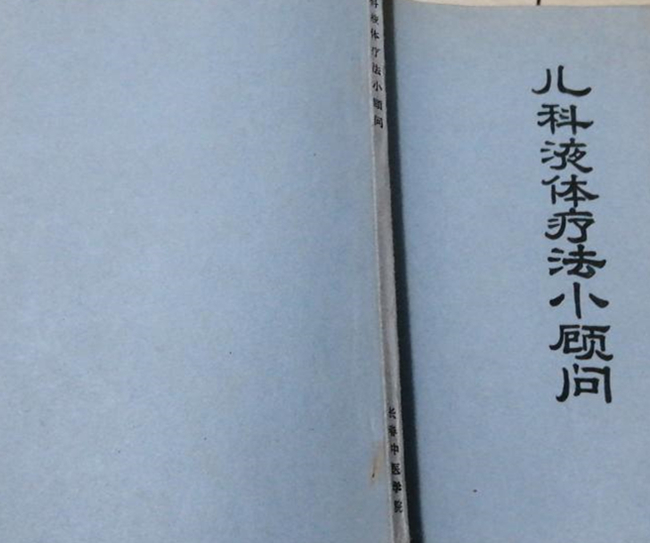 儿科液体疗法小顾问
科液体疗法小顾问
长春中医学院